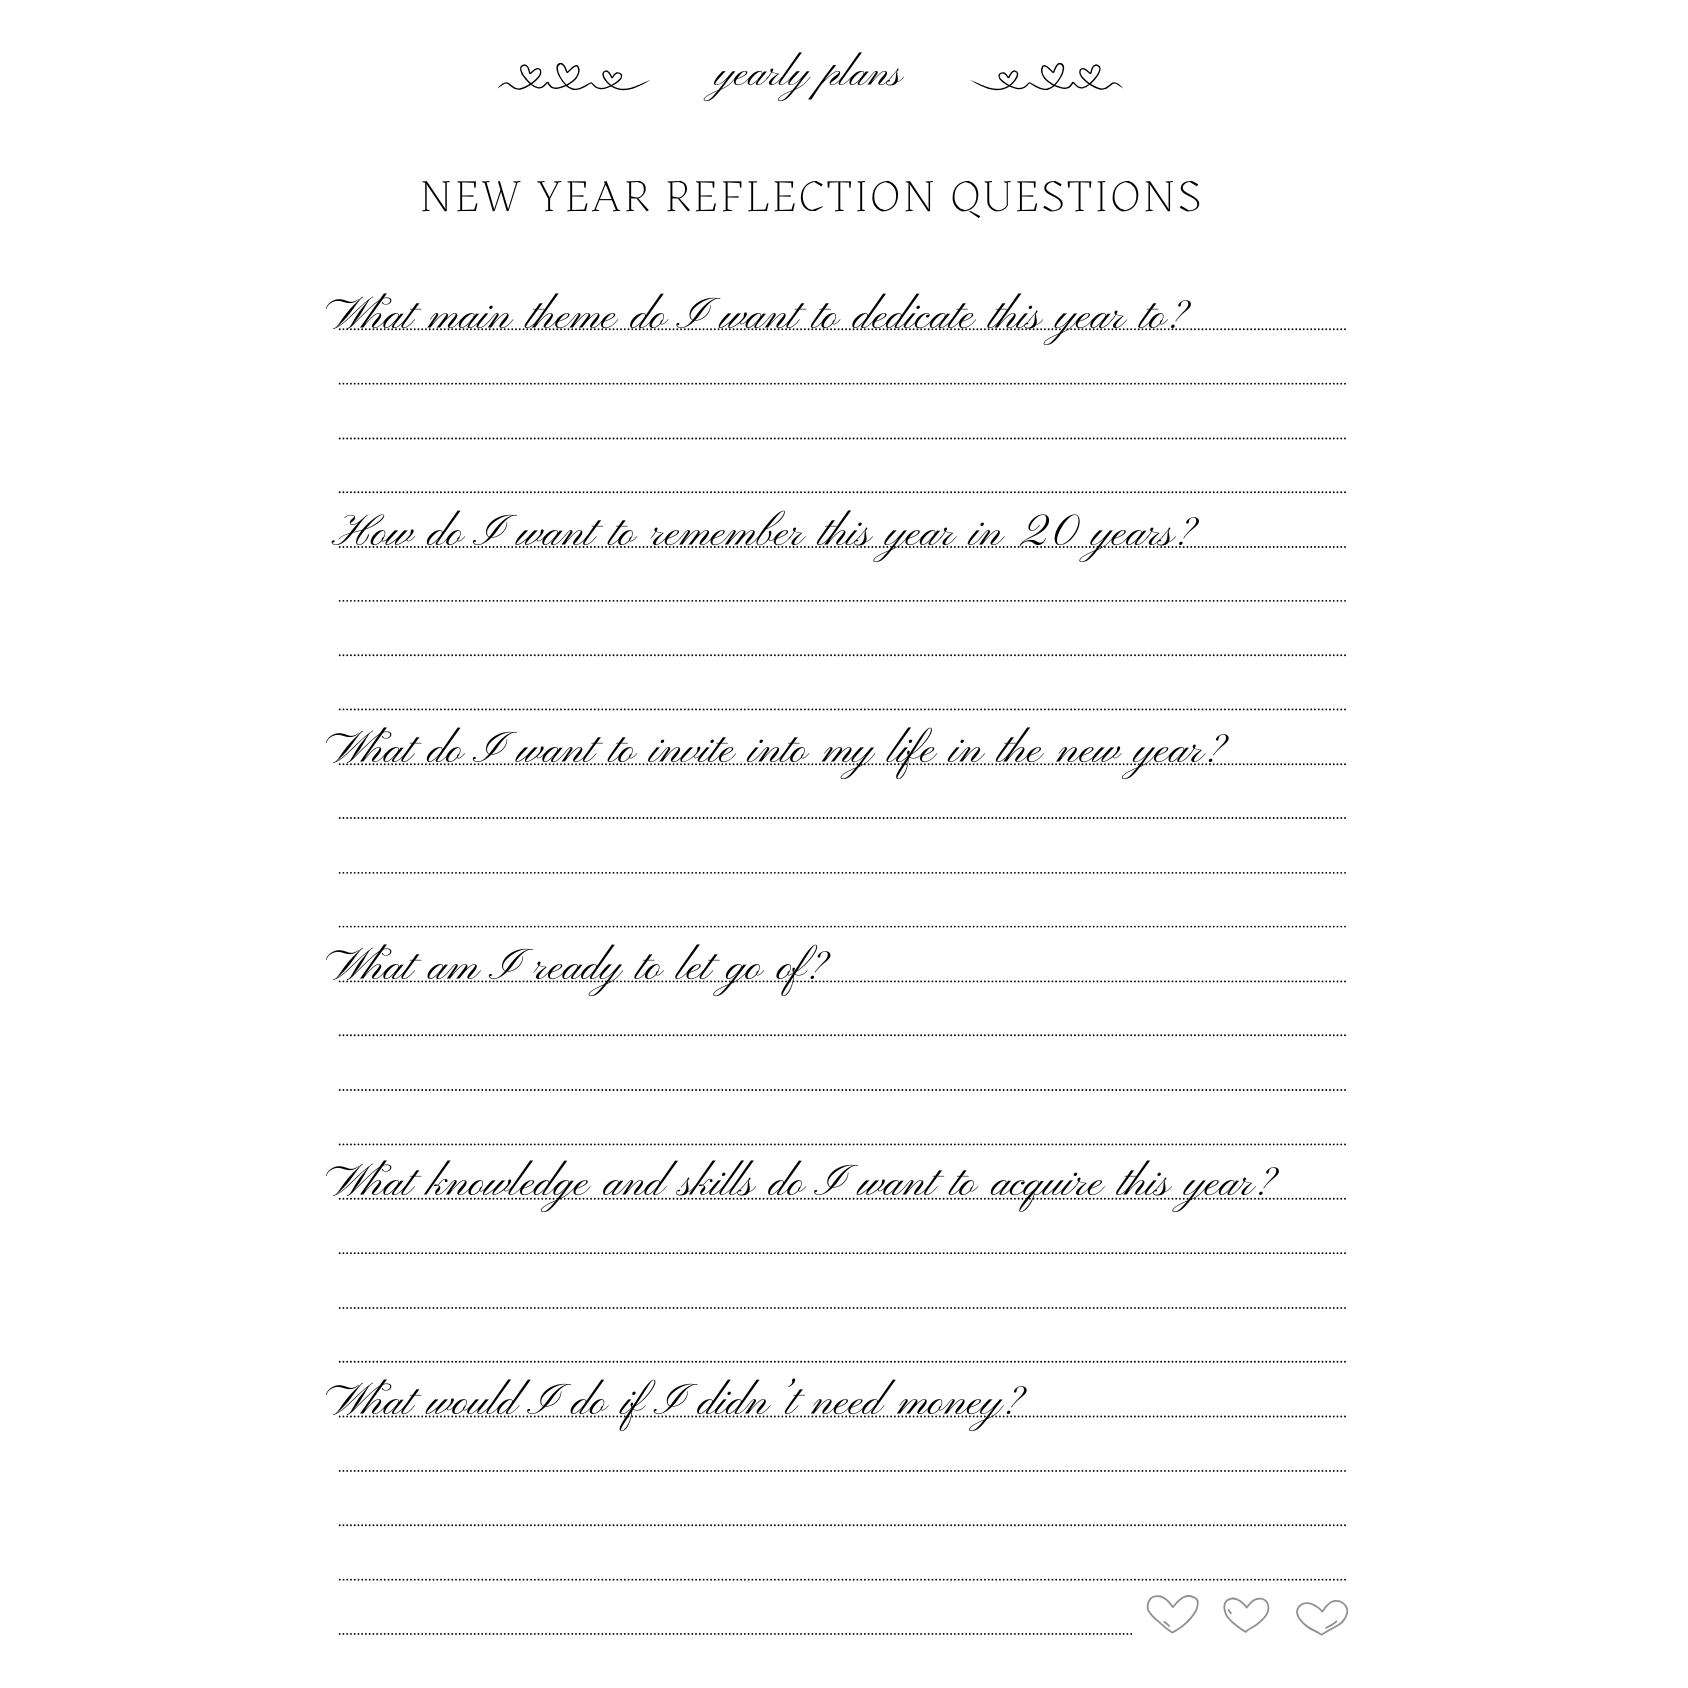 yearly plans
NEW YEAR REFLECTION QUESTIONS
What main theme do I want to dedicate this year to?
How do I want to remember this year in 20 years?
What do I want to invite into my life in the new year?
What am I ready to let go of?
What knowledge and skills do I want to acquire this year?
What would I do if I didn't need money?